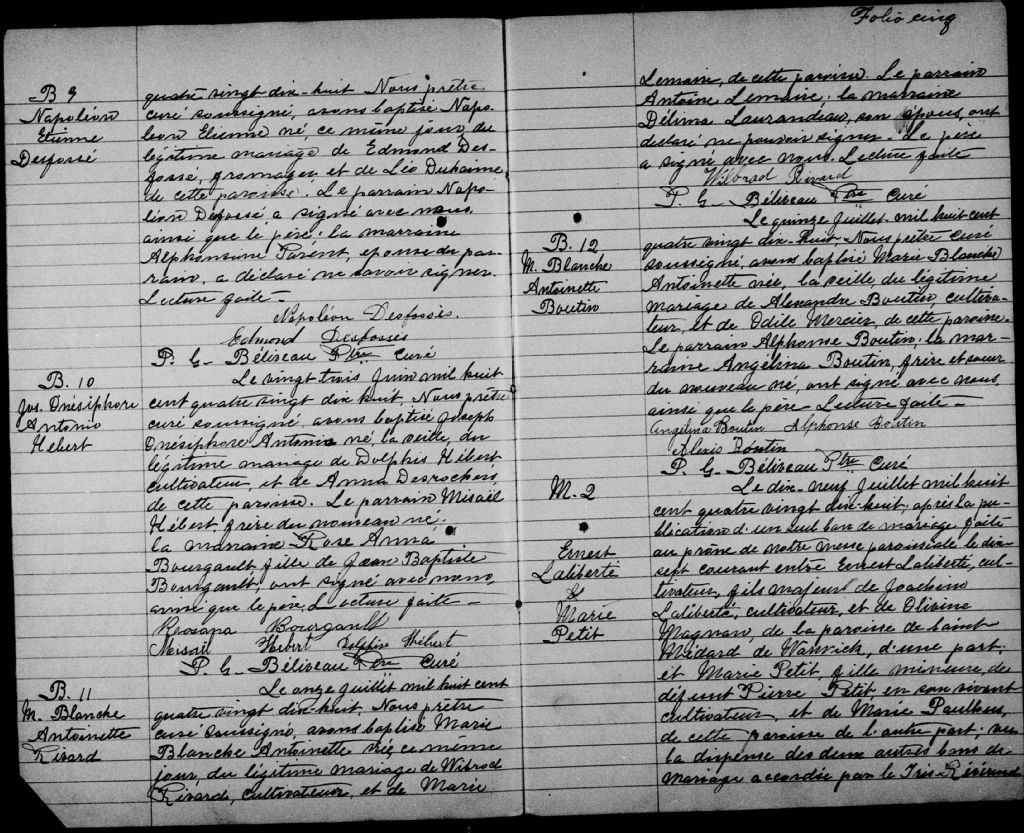 B 9
Napoléon
Etienne
Desfossé
quatre vingt dix-huit Nous prêtre
curé soussigné, avons baptisé Napo-
léon Etienne né ce même jour du
légitime mariage de Edmond Des-
fossé, fromager et de Léo Duhaime,
de cette paroisse. Le parrain Napo-
léon Desfossé a signé avec nous,
ainsi que le père; la marraine
Alphonsine Parent, épouse du par-
rain, a déclaré ne savoir signer.
Lecture faite-
Napoléon Desfossés.
Edmond Desfossés
P. G. Béliveau Ptre Curé
B. 10
Jos. Onésiphore
Antonio
Hébert
Le vingt trois Juin mil huit
cent quatre vingt dix-huit, Nous prêtre
curé soussigné, avons baptisé Joseph
Onésiphore Antonio né la veille, du
légitime mariage de Dolphis Hébert
cultivateur, et de Anna Desrochers,
de cette paroisse. Le parrain Misaël
Hébert, frère du nouveau né;
la marraine Rose Anna
Bourgault, fille de Jean Baptiste
Bourgault, ont signé avec nous,
ainsi que le père. Lecture faite-
Rosana Bourgault
Misaël Hébert Delphise Hébert
P. G. Béliveau Ptre Curé
B. 11
M. Blanche
Antoinette
Rivard
Le onze Juillet mil huit cent
quatre vingt dix-huit, Nous prêtre
curé soussigné, avons baptisé Marie
Blanche Antoinette née, ce même
jour, du légitime mariage de Wibrod
Rivard, cultivateur, et de Marie
Folio cinq
Lemaire, de cette paroisse. Le parrain
Antoine Lemaire; la marraine
Délima Laurandeau, son épouse, ont
déclaré ne pouvoir signer. Le père
a signé avec nous. Lecture faite
Wilbrod Rivard
P. G. Béliveau Ptre Curé
B. 12
M. Blanche
Antoinette
Boutin
Le quinze Juillet mil huit cent
quatre vingt dix-huit, Nous prêtre curé
soussigné, avons baptisé Marie Blanche
Antoinette née, la veille, du légitime
mariage de Alexandre Boutin, cultiva-
teur, et de Odile Mercier, de cette paroisse.
Le parrain Alphonse Boutin; la mar-
raine Angélina Boutin, frère et soeur
du nouveau né, ont signé avec nous,
ainsi que le père - Lecture faite -
Angélina Boutin Alphonse Boutin
Alexis Boutin
P. G. Béliveau Ptre Curé
M-2
Ernest
Laliberté
&
Marie
Petit
Le dix-neuf Juillet mil huit
cent quatre vingt dix-huit, après la pu-
blication d'un seul ban de mariage faite
au prône de notre Messe paroissiale le dix
sept courant entre Ernest Laliberté, cul-
tivateur, fils majeur de Joachim
Laliberté, cultivateur, et de Olivine
Magnan, de la paroisse de Saint
Médard de Warwick, d'une part;
et Marie Petit, fille mineure de
défunt Pierre Petit en son vivant
cultivateur, et de Marie Paulhus,
de cette paroisse de l'autre part; vu
la dispense des deux autres bans de
mariage accordée par le Très-Révérend